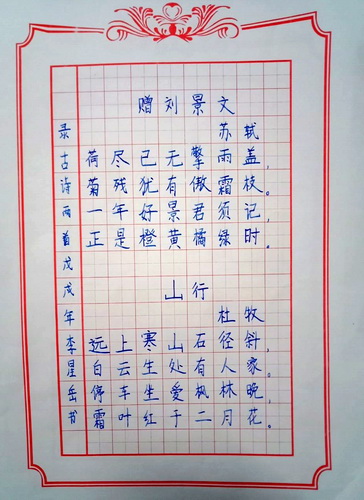 赠刘景文
苏轼
荷尽已无擎雨盖，
菊残犹有傲霜枝。
一年好景君须记，
正是橙黄橘绿时。
山行
杜牧
远上寒山石径斜，
白云生处有人家。
停车坐爱枫林晚，
霜叶红于二月花。
录古诗两首戊戌年李星岳书